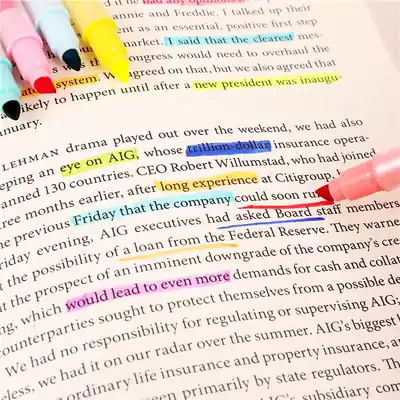 he had any opinions
annie and Freddie. I talked up their
t as an essential, positive first step
market. I said that the clearest mes-
ongress would need to overhaul the
system. We agreed on that, but we also agreed that
likely to happen until after a new president was inaugu-
anuary.
LEHMAN drama played out over the weekend, we had also
eping an eye on AIG, whose trillion-dollar insurance opera-
anned 130 countries. CEO Robert Willumstad, who had joined
ree months earlier, after long experience at Citigroup,
the previous Friday that the company could soon ru
riday evening, AIG executives had asked Board staff members
t the possibility of a loan from the Federal Reserve. They warne
t the prospect of an imminent downgrade of the company's cre
ng, which would lead to even more demands for cash and collat
counterparties sought to protected themselves from a possible de
We had no responsibility for regulating or supervising AIG;
less, we had it on our radar over the summer. AIG's biggest
ordinary life insurance and property insurance, a
seen primarily by state regulators. Th
AIG's subsidiary com